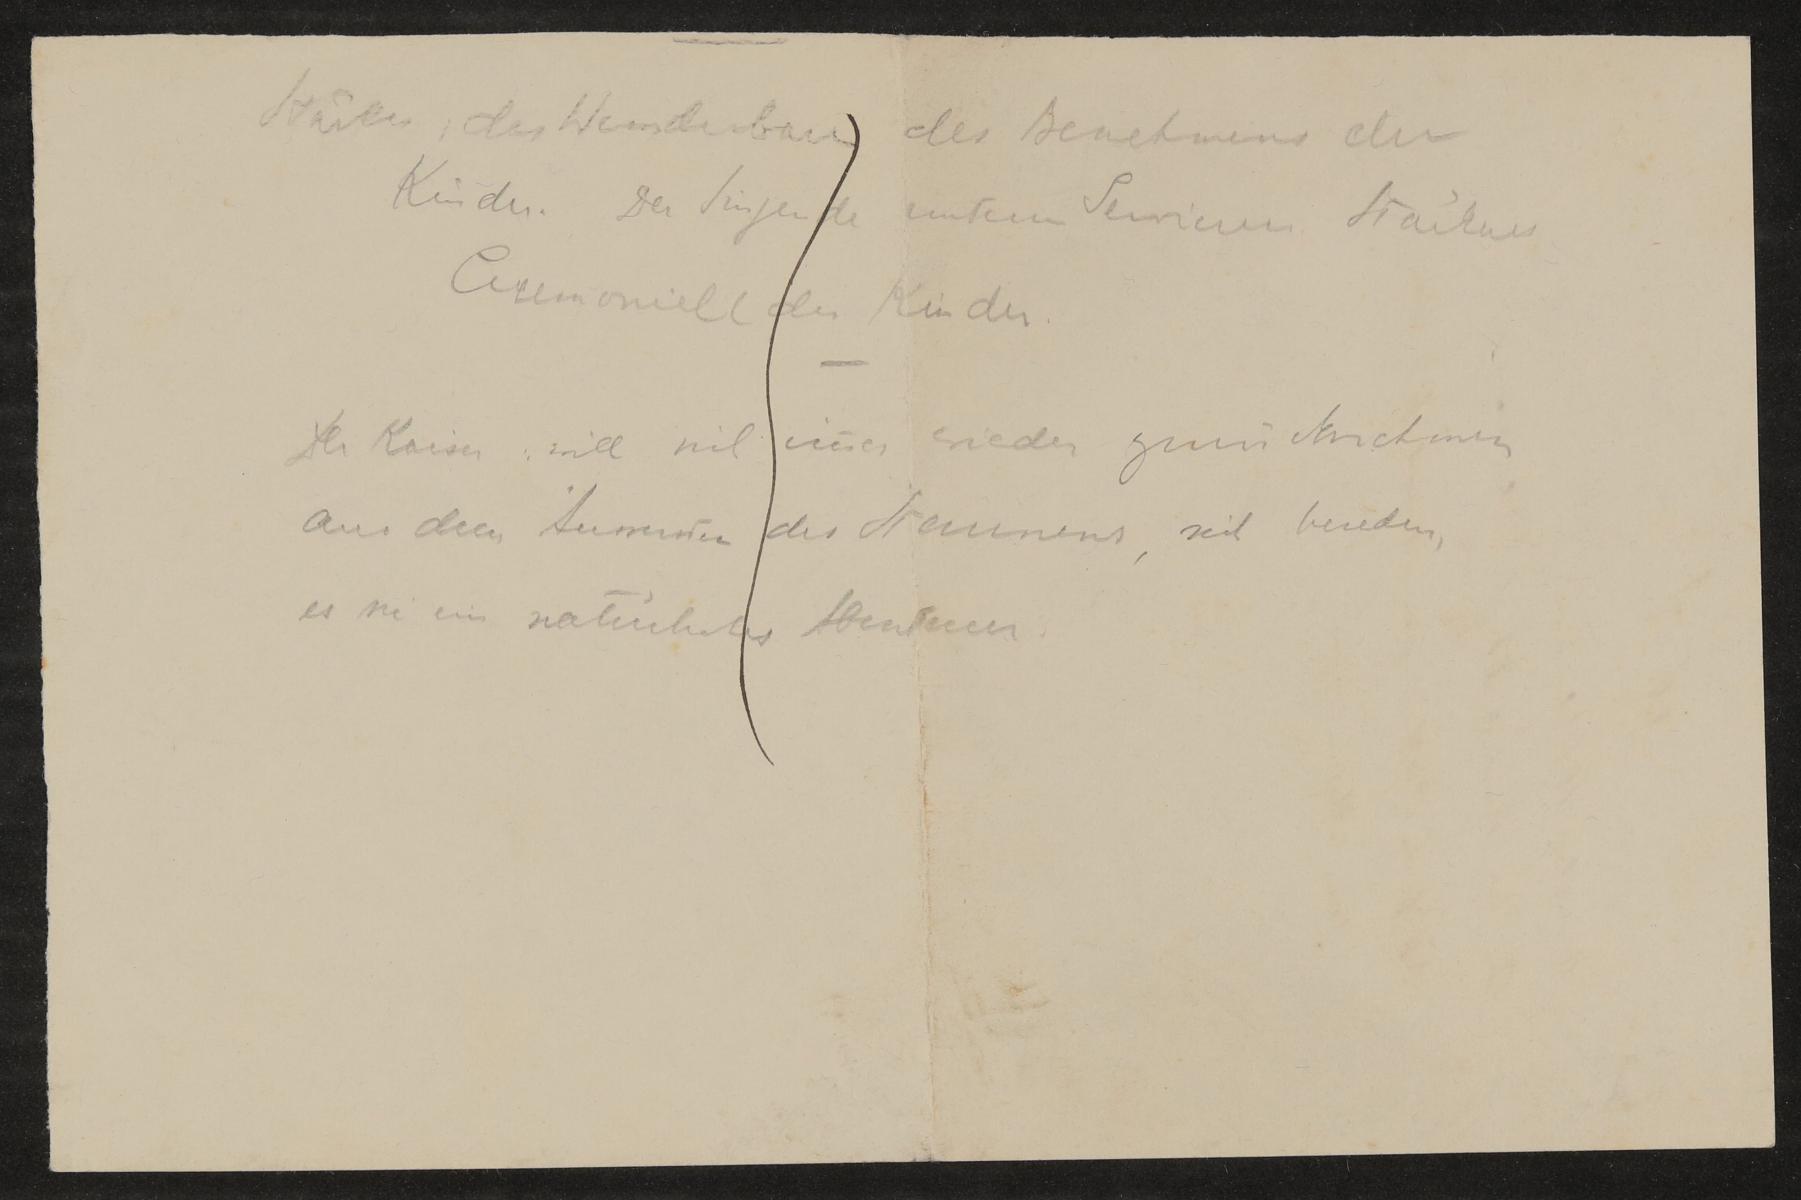 Stärker: das Wunderbare des Benehmens der
Kinder. Der Singende unterm Servieren. Stärkeres
Ceremoniell der Kinder.
—
Der Kaiser: will sich immer wieder zurücknehmen
aus dem Äussersten des Staunens, sich bereden,
es sei ein natürliches Abenteuer.